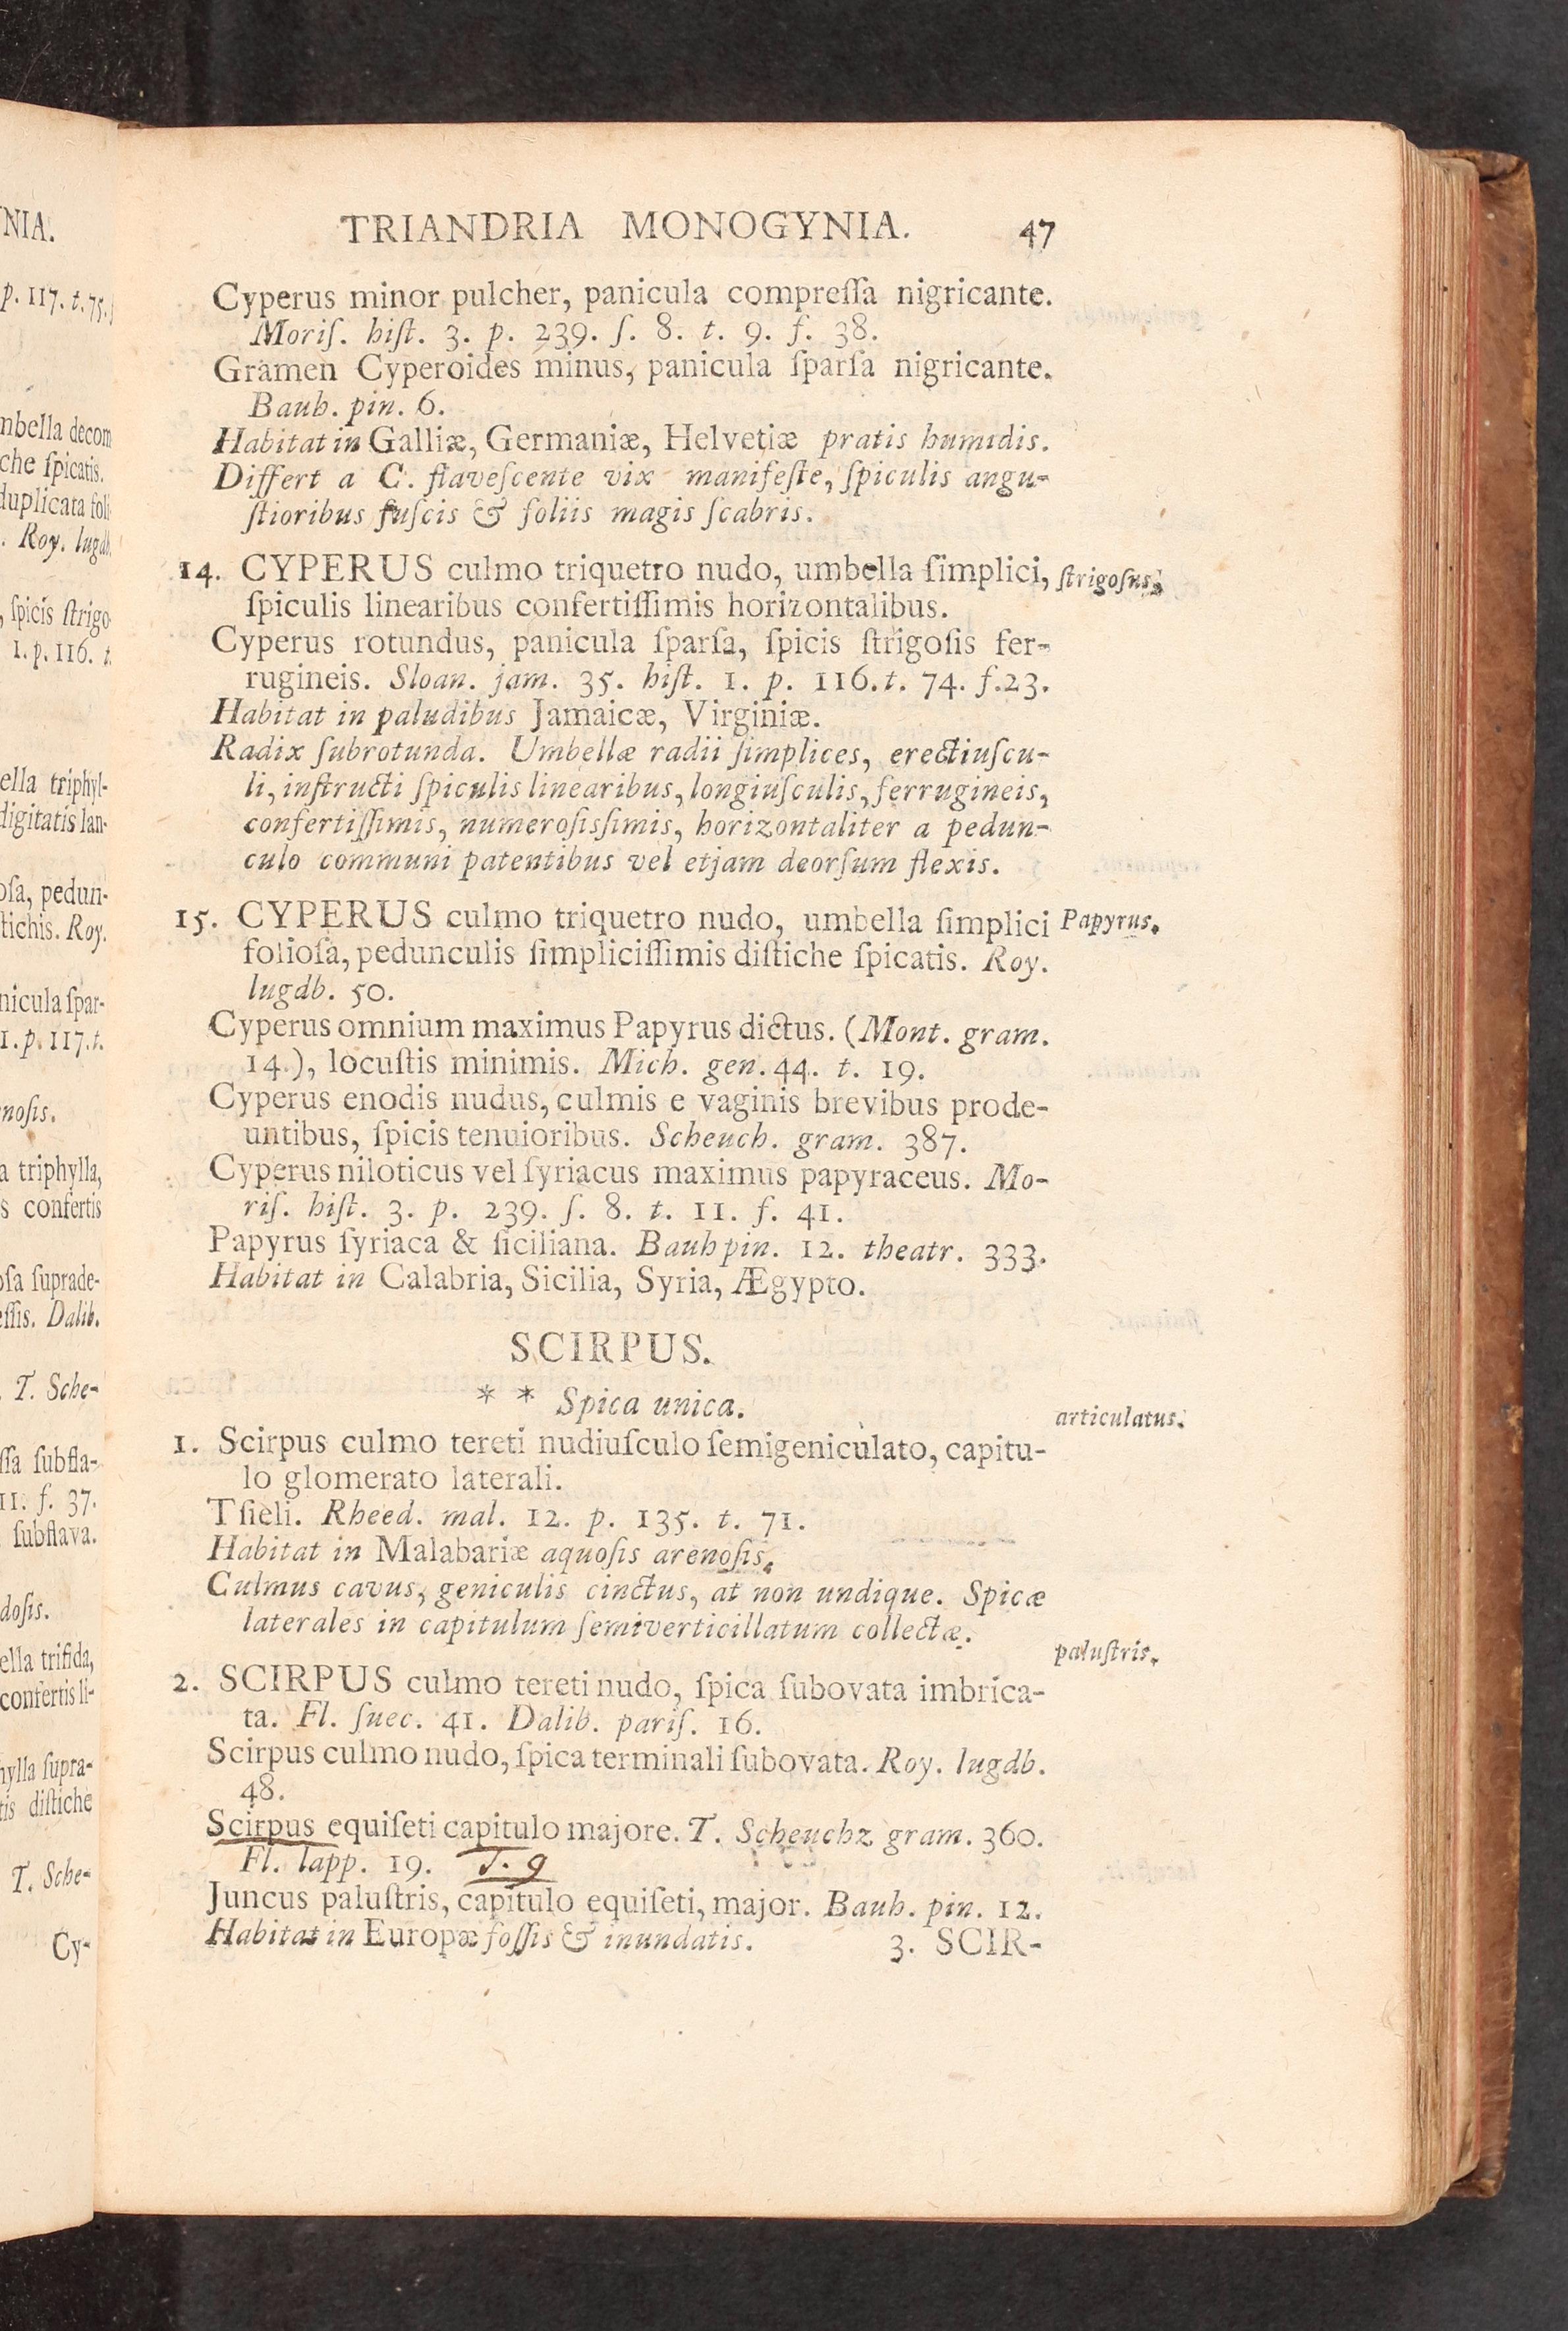 TRIANDRIA MONOGYNIA. 47
Cyperus minor pulcher, panicula compreſſa nigricante.
Moriſ. hiſt. 3. p. 239. ſ. 8. t. 9. f. 38.
Gramen Cyperoides minus, panicula ſparſa nigricante.
Bauh. pin. 6.
Habitat in Galliæ, Germaniæ, Helvetiæ pratis humidis.
Differt a C. flaveſcente vix manifeſte, ſpiculis angu-
ſtioribus fuſcis & foliis magis ſcabris.
14. CYPERUS culmo triquetro nudo, umbella ſimplici, ſtrigoſus.
ſpiculis linearibus confertiſſimis horizontalibus.
Cyperus rotundus, panicula ſparſa, ſpicis ſtrigoſis fer-
rugineis. Sloan. jam. 35. hiſt. 1. p. 116. t. 74. f. 23.
Habitat in paludibus Jamaicæ, Virginiæ.
Radix ſubrotunda. Umbellæ radii ſimplices, erectiuſcu-
li, inſtructi ſpiculis linearibus, longiuſculis, ferrugineis,
confertiſſimis, numeroſisſimis, horizontaliter a pedun-
culo communi patentibus vel etjam deorſum flexis.
15. CYPERUS culmo triquetro nudo, umbella ſimplici Papyrus.
folioſa, pedunculis ſimpliciſſimis diſtiche ſpicatis. Roy.
lugdb. 50.
Cyperus omnium maximus Papyrus dictus. (Mont. gram.
14.), locuſtis minimis. Mich. gen. 44. t. 19.
Cyperus enodis nudus, culmis e vaginis brevibus prode-
untibus, ſpicis tenuioribus. Scheuch. gram. 387.
Cyperus niloticus vel ſyriacus maximus papyraceus. Mo-
riſ. hiſt. 3. p. 239. ſ. 8. t. 11. f. 41.
Papyrus ſyriaca & ſiciliana. Bauh pin. 12. theatr. 333.
Habitat in Calabria, Sicilia, Syria, Ægypto.
SCIRPUS.
* * Spica unica.
articulatus.
1. Scirpus culmo tereti nudiuſculo ſemigeniculato, capitu-
lo glomerato laterali.
Tſieli. Rheed. mal. 12. p. 135. t. 71.
Habitat in Malabariæ aquoſis arenoſis.
Culmus cavus, geniculis cinctus, at non undique. Spicæ
laterales in capitulum ſemiverticillatum collectæ.
paluſtris.
2. SCIRPUS culmo tereti nudo, ſpica ſubovata imbrica-
ta. Fl. ſuec. 41. Dalib. pariſ. 16.
Scirpus culmo nudo, ſpica terminali ſubovata. Roy. lugdb.
48.
Scirpus equiſeti capitulo majore. T. Scheuchz gram. 360.
Fl. lapp. 19. T. 9
Juncus paluſtris, capitulo equiſeti, major. Bauh. pin. 12.
Habitat in Europæ foſſis & inundatis. 3. SCIR-
NIA.
p. 117. t. 75.
mbella decom
che ſpicatis.
duplicata foli
. Roy. lugdb.
, ſpicis ſtrigo
1. p. 116. t.
ella triphyl-
digitatis lan-
oſa, pedun-
ſtichis. Roy.
nicula ſpar-
1. p. 117. t.
noſis.
a triphylla,
s confertis
oſa ſuprade-
eſſis. Dalib.
. T. Sche-
ſſa ſubfla-
11. f. 37.
ſubflava.
doſis.
ella trifida,
confertis li-
hylla ſupra-
tis diſtiche
T. Sche-
Cy-